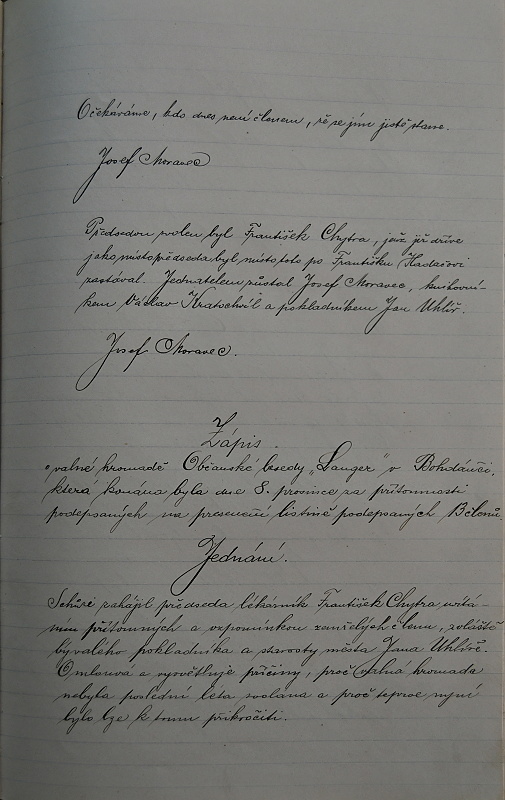 Očekáváme, kdo dnes není členem, že se jím jistě stane.
Josef Moravec
Předsedou zvolen byl František Chytra, jenž již dříve
jako místopředseda byl místo toto po Františku Hadačovi
zastával. Jednatelem zůstal Josef Moravec, knihovní-
kem Václav Kratochvíl a pokladníkem Jan Uhlíř.
Josef Moravec.
Zápis
o valné hromadě Občanské besedy „Langer" v Bohdanči,
která konána byla dne 8. prosince za přítomnosti
podepsaných na presenční listině podepsaných členů.
Jednání.
Schůzi zahájil předseda lékárník František Chytra uvítá-
ním přítomných a vzpomínkou zemřelých členů, zvláště
bývalého pokladníka a starosty města Jana Uhlíře.
Omlouvá a vysvětluje příčiny, proč valná hromada
nebyla poslední léta svolána a proč teprve nyní
bylo lze k tomu přikročiti.